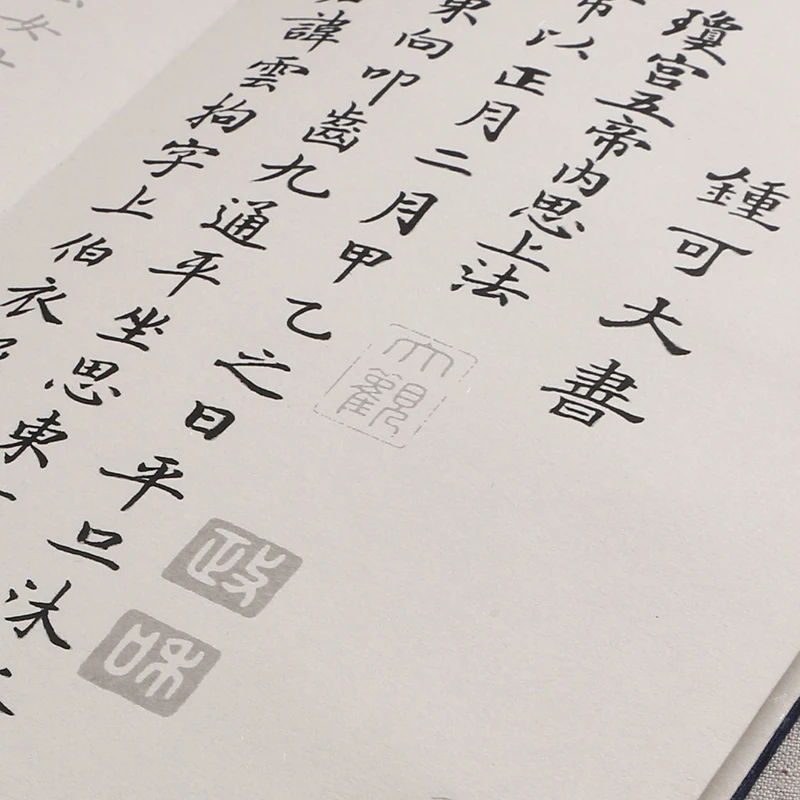 鍾可大書
瓊宮五帝內思上法
常以正月二月甲乙之日平旦沐
東向叩齒九通平坐思東
諱雲拘字上伯衣
女
大觀
政
和